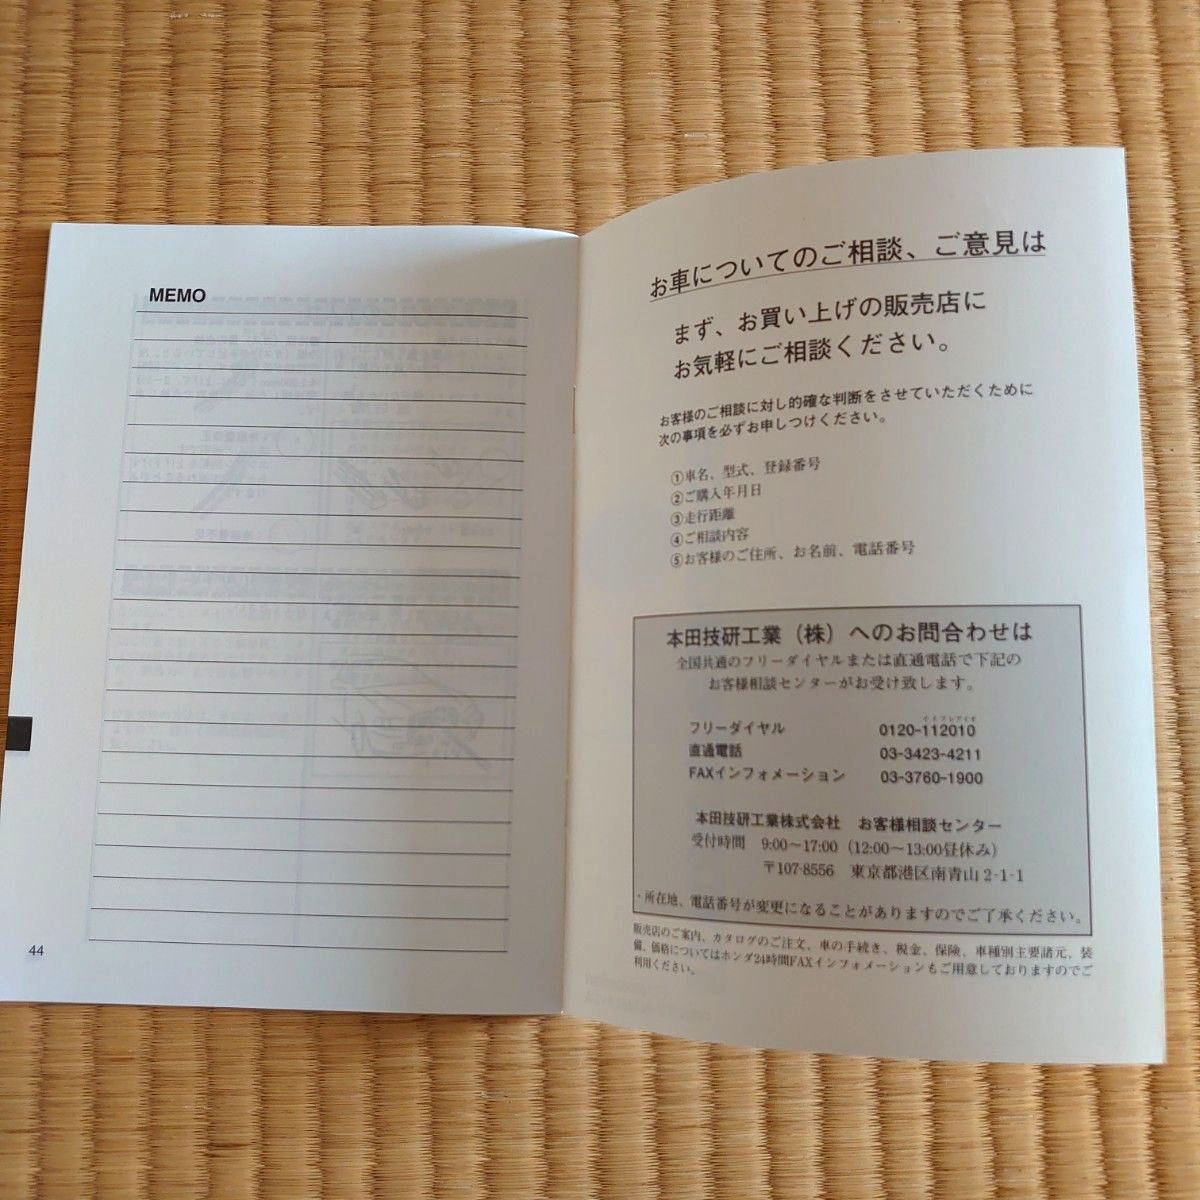 MEMO
44
お車についてのご相談、ご意見は
まず、お買い上げの販売店に
お気軽にご相談ください。
お客様のご相談に対し的確な判断をさせていただくために
次の事項を必ずお申しつけください。
①車名、型式、登録番号
②ご購入年月日
③走行距離
④ご相談内容
⑤お客様のご住所、お名前、電話番号
本田技研工業（株）へのお問合わせは
全国共通のフリーダイヤルまたは直通電話で下記の
お客様相談センターがお受け致します。
フリーダイヤル 0120-112010
直通電話 03-3423-4211
FAXインフォメーション 03-3760-1900
本田技研工業株式会社 お客様相談センター
受付時間 9:00〜17:00（12:00〜13:00昼休み）
〒107-8556 東京都港区南青山 2-1-1
・所在地、電話番号が変更になることがありますのでご了承ください。
販売店のご案内、カタログのご注文、車の手続き、税金、保険、車種別主要諸元、装
備、価格についてはホンダ24時間FAXインフォメーションもご用意しておりますのでご
利用ください。